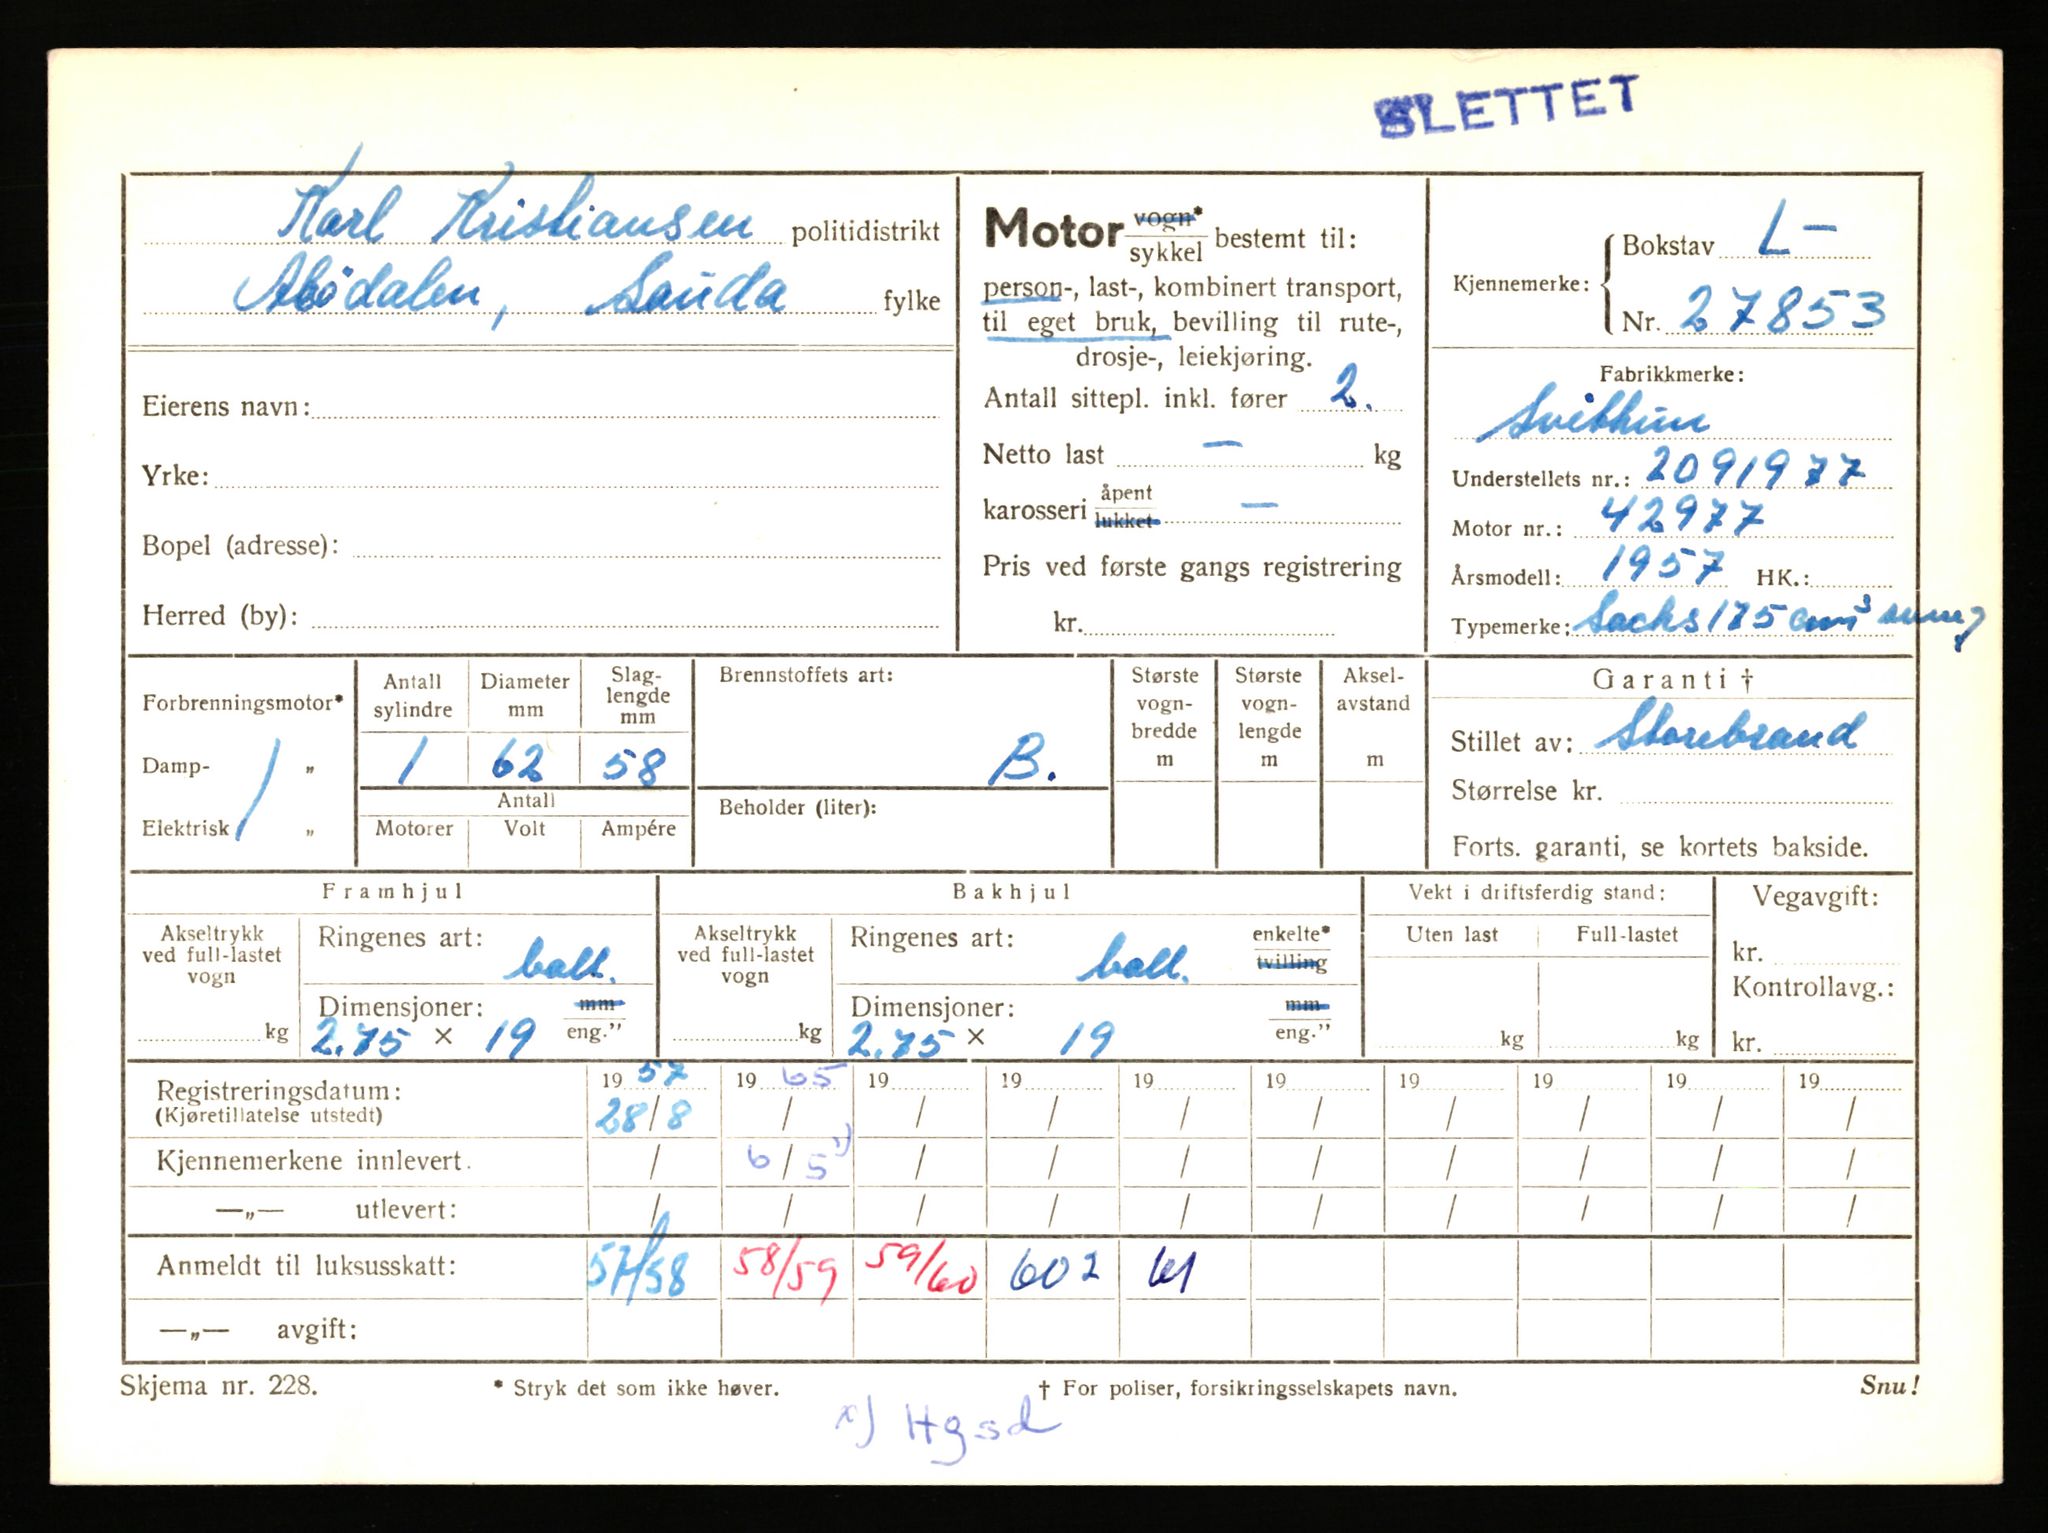 SLETTET
Karl Kristiansen politidistrikt
Åbödalen, Sauda fylke
Eierens navn:
Yrke:
Bopel (adresse):
Herred (by):
Motor vogn* / sykkel bestemt til:
person-, last-, kombinert transport,
til eget bruk, bevilling til rute-,
drosje-, leiekjøring.
Antall sittepl. inkl. fører 2.
Netto last — kg
karosseri åpent / lukket —
Pris ved første gangs registrering
kr.
Kjennemerke: Bokstav L-
Nr. 27853
Fabrikkmerke:
Svithun
Understellets nr.: 2091977
Motor nr.: 42977
Årsmodell: 1957 HK.:
Typemerke: Sachs 175 cm³
Forbrenningsmotor*
Damp- „
Elektrisk „
Antall sylindre 1
Diameter mm 62
Slag-lengde mm 58
Antall
Motorer Volt Ampére
Brennstoffets art:
B.
Beholder (liter):
Største vogn-bredde m
Største vogn-lengde m
Aksel-avstand m
Garanti †
Stillet av: Storebrand
Størrelse kr.
Forts. garanti, se kortets bakside.
Framhjul
Akseltrykk ved full-lastet vogn kg
Ringenes art: ball.
Dimensjoner: mm
2.75 × 19 eng.”
Bakhjul
Akseltrykk ved full-lastet vogn kg
Ringenes art: ball. enkelte* / tvilling
Dimensjoner: mm
2.75 × 19 eng.”
Vekt i driftsferdig stand:
Uten last Full-lastet
kg kg
Vegavgift:
kr.
Kontrollavg.:
kr.
Registreringsdatum: 19 57 19 65 19 19 19 19 19 19 19 19
(Kjøretillatelse utstedt) 28/8 / / / / / / / / /
Kjennemerkene innlevert. / 6/5 x) / / / / / / / /
—„— utlevert: / / / / / / / / / /
Anmeldt til luksusskatt: 57/58 58/59 59/60 602 61
—„— avgift:
Skjema nr. 228. * Stryk det som ikke høver. † For poliser, forsikringsselskapets navn. Snu!
x) Hgsd